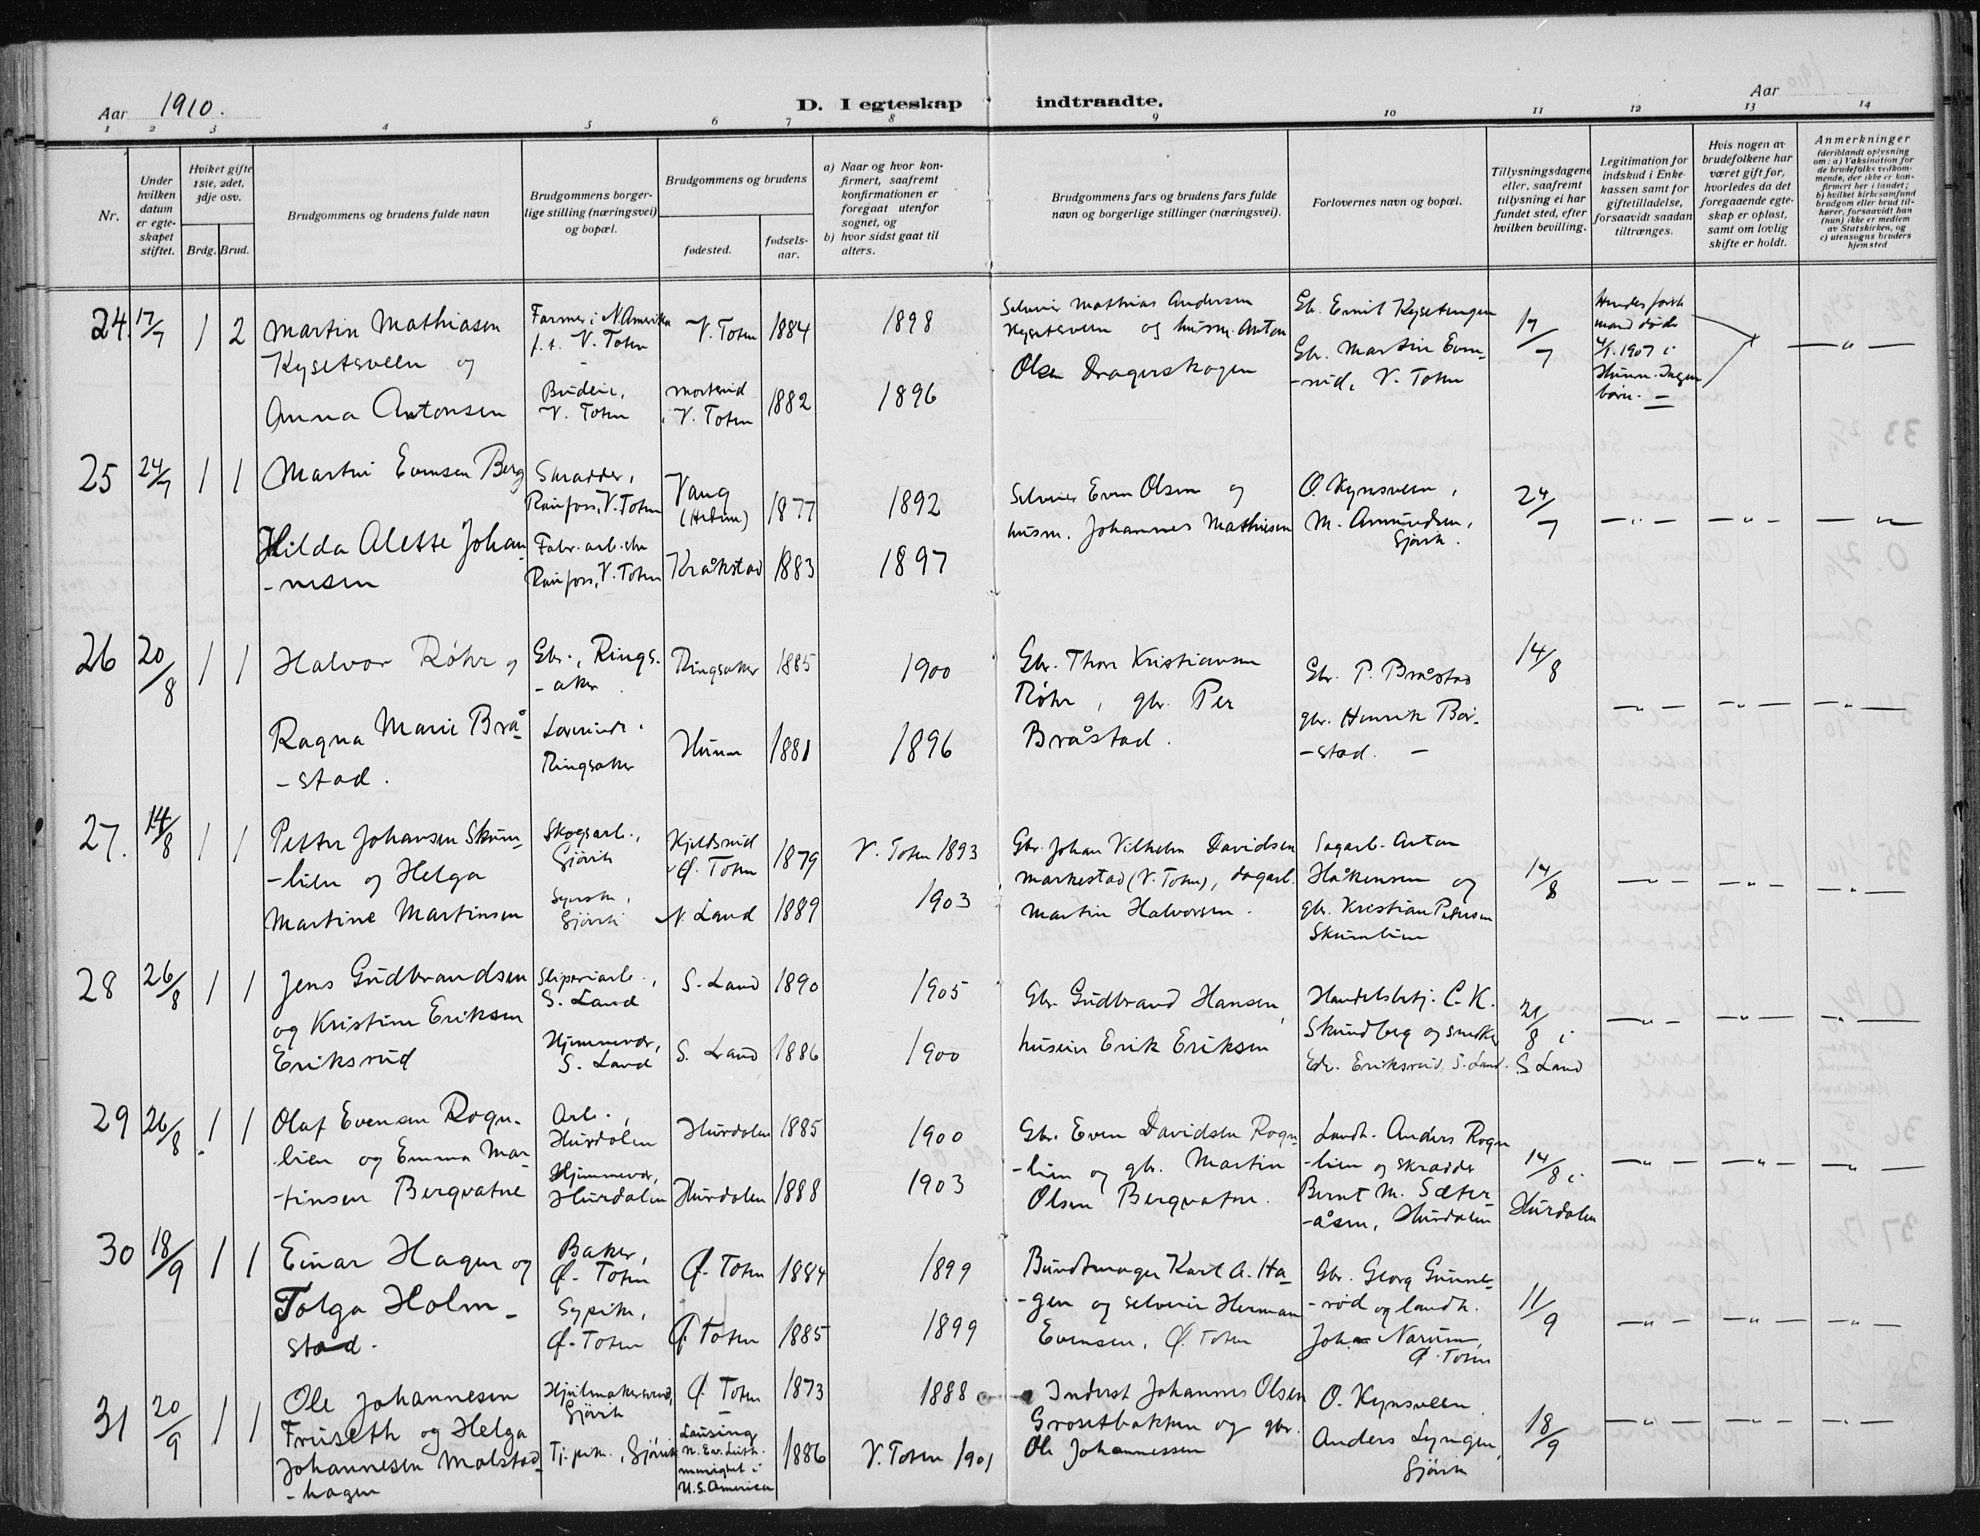 Aar 1910.
D. I egteskap indtraadte.
Aar
1 2 3 4 5 6 7 8 9 10 11 12 13 14
Nr.
Under hvilken datum er egteskapet stiftet.
Hviket gifte 1ste, 2det, 3dje osv.
Brdg. Brud.
Brudgommens og brudens fulde navn
Brudgommens borgerlige stilling (næringsvei) og bopæl.
Brudgommens og brudens
fødested.
fødselsaar.
a) Naar og hvor konfirmert, saafremt konfirmationen er foregaat utenfor sognet, og
b) hvor sidst gaat til alters.
Brudgommens fars og brudens fars fulde navn og borgerlige stillinger (næringsvei).
Forlovernes navn og bopæl.
Tillysningsdagene eller, saafremt tillysning ei har fundet sted, efter hvilken bevilling.
Legitimation for indskud i Enkekassen samt for giftetilladelse, forsaavidt saadan tiltrænges.
Hvis nogen av brudefolkene har været gift før, hvorledes da det foregaende egteskap er opløst, samt om lovlig skifte er holdt.
Anmerkninger (deriblandt oplysning om: a) Vaksination for de brudefolks vedkommende, der ikke er konfirmert her i landet; b) hvilket kirkesamfund brudgom eller brud tilhører, forsaavidt han (hun) ikke er medlem av Statskirken, og c) utensogns bruders hjemsted
24. 17/7 1 2
Martin Mathiasen
Kysetsveen og
Anna Antonsen
Farmer i N. Amerika
f. t. V. Toten
Budeie,
V. Toten
V. Toten 1884 1898
i V. Toten 1882 1896
Selveier Mathias Andersen
Kysetsveen og husm. Anton
Olsen Dragerskogen
Gbr. Emil Kysetengen
Gbr. Martin Even-
-rud, V. Toten
17/7
Hendes forh
mand døde
4/1. 1907 i
Hunn. Ingen
børn. —
— " —
25 24/7 1 1
Martin Evensen Berg
Hilda Alette Johan-
-nesen
Skrædder,
Raufoss, V. Toten
Fabr. arb.ske
Raufoss, V. Toten
Vang
(Hedm) 1877 1892
Kråkstad 1883 1897
Selveier Even Olsen og
husm. Johannes Mathiesen
O. Kynsveen,
M. Amundsen,
Gjøvik.
24/7 — " — — " — — " —
26 20/8 1 1
Halvor Røhr og
Ragna Marie Brå-
-stad.
Gbr., Rings.
-aker
Ringsaker
Ringsaker 1885 1900
Hunn 1881 1896
Gbr. Thor Kristiansen
Røhr, gbr. Per
Bråstad.
Gbr. P. Bråstad
gbr. Henrik Brå-
-stad. —
14/8 — " — — " — — " —
27. 14/8 1 1
Petter Johansen Skum-
-lien og Helga
Martine Martinsen
Skogsarb.,
Gjøvik
Gjøvik
Kjeldsrud
Ø. Toten 1879 V. Toten 1893
N. Land 1889 1903
Gbr. Johan Vilhelm Davidsen
Markestad (V. Toten), dagarb.
Martin Halvorsen.
Sagarb. Anton
Håkensen og
gbr. Kristian Petersen
Skumlien
14/8 — " — — " — — " —
28 26/8 1 1
Jens Gudbrandsen
og Kristine Eriksen
Eriksrud
Sliperiarb.,
S. Land
Hjemmevær.,
S. Land
S. Land 1890 1905
S. Land 1886 1900
Gbr. Gudbrand Hansen,
huseier Erik Eriksen
Handelsbetj. C. K.
Skundberg og snedker
Edv. Eriksrud, S. Land.
21/8 i
S Land
— " — — " — — " —
29 26/8 1 1
Olaf Evensen Rogn-
-lien og Emma Mar-
-tinsen Bergvatne
Arb.,
Hurdalen
Hjemmevær.,
Hurdalen
Hurdalen 1885 1900
Hurdalen 1888 1903
Gbr. Even Davidsen Rogn-
-lien og gbr. Martin
Olsen Bergvatne.
Landh. Anders Rogn
-lien og skrædder
Bernt M. Sæter-
-åsen, Hurdalen
14/8 i
Hurdalen
— " — — " — — " —
30 18/9 1 1
Einar Hagen og
Tolga Holm-
stad.
Baker,
Ø. Toten
Sypike,
Ø. Toten
Ø. Toten 1884 1899
Ø. Toten 1885 1899
Bundtmager Karl A. Ha-
-gen og selveier Herman
Evensen, Ø. Toten
Gbr. Georg Gunne-
-rød og landh.
Johan Narum,
Ø. Toten
11/9 — " — — " — — " —
31 20/9 1 1
Ole Johannesen
Fruseth og Helga
Johannesen Molstad-
-hagen
Hjulmakersvend,
Gjøvik
Tj. pik., Gjøvik
Ø. Toten 1873 1888
Lansing
N. Ev. Luth.
menighet i
U.S. America 1886 V. Toten 1901
Inderst Johannes Olsen
Grosetbakken og gbr.
Ole Johannessen
O. Kynsveen
Anders Lyngen,
Gjøvik
18/9 — " — — " — — " —